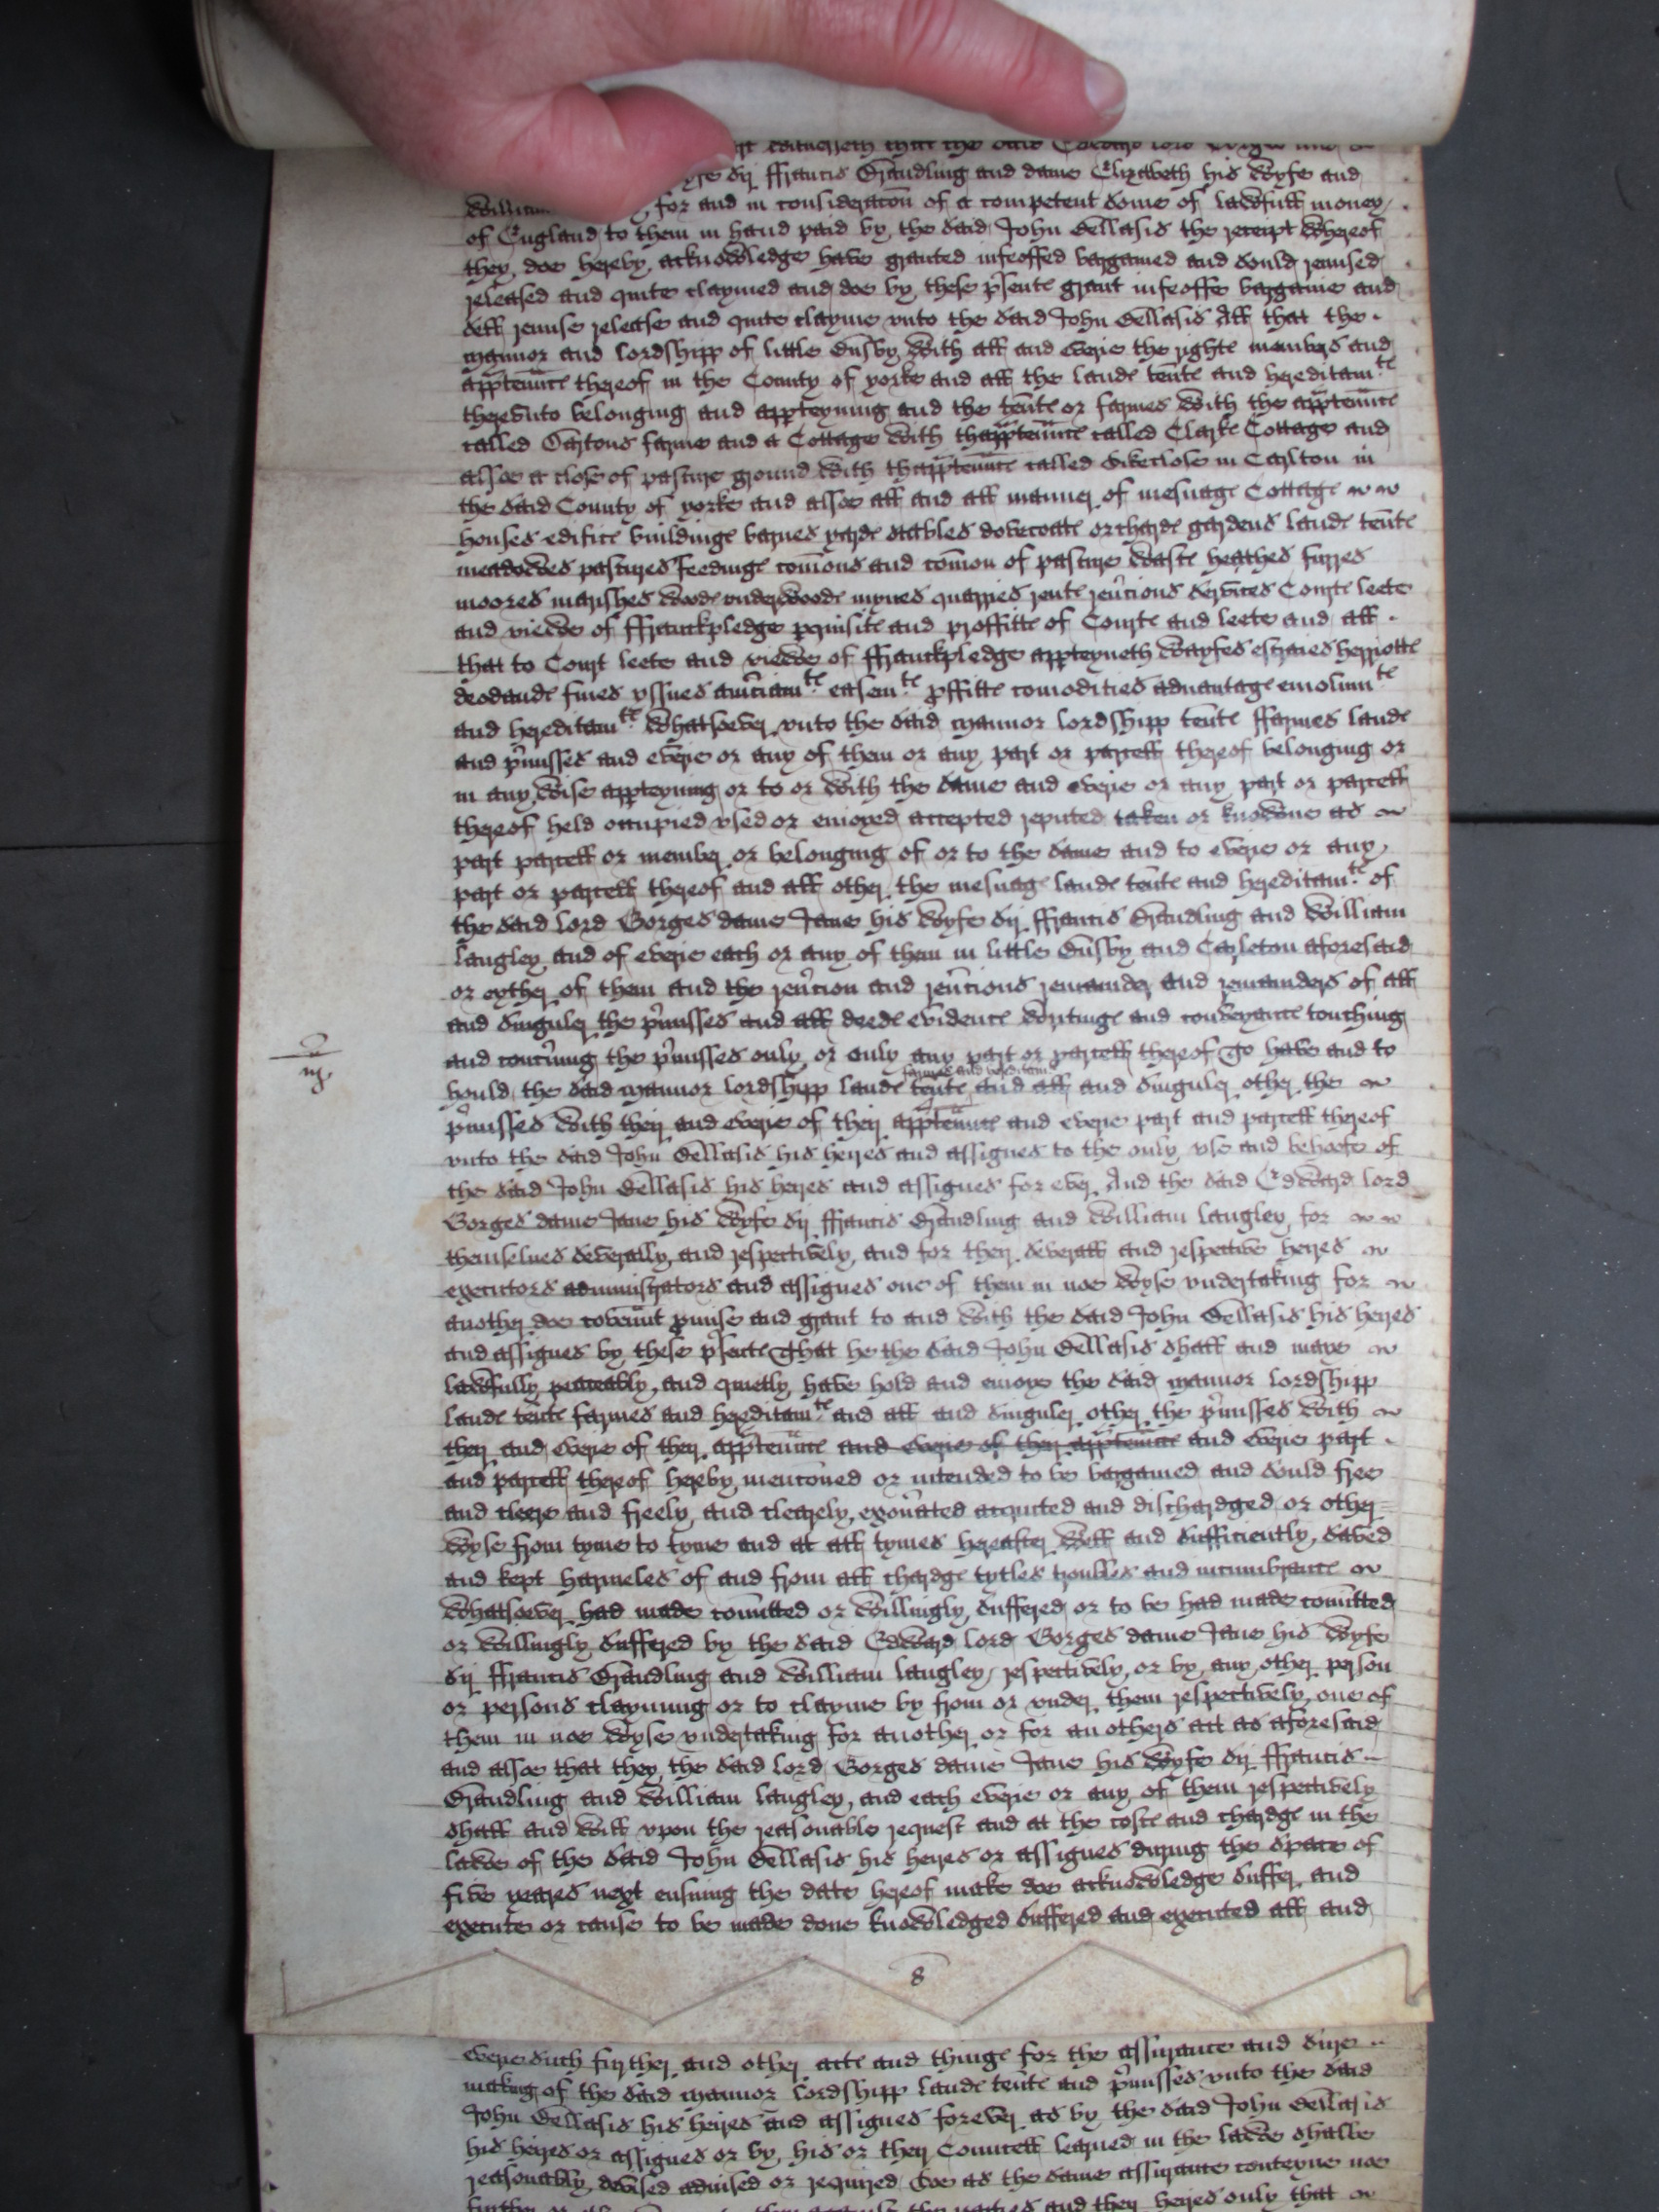 witnesseth that the said Edward lord Gorges
wyfe Sir ffrancis Grandling and dame Elizabeth his wyfe and
William for and in consideracōn of a competent Some of lawfull money
of England to them in hand paid by the said John Bellasis the receipt whereof
they doe hereby acknowledge have granted infeoffed bargained and sould remised
released and quite claymed and doe by these p'sente grant infeoffe bargaine and
sell remise release and quite clayme vnto the said John Bellasis All that the
mannor and lordshipp of little Busby with all and everie the righte members and
apptenn'ce thereof in the County of yorke and all the lande tente and hereditamte
therevnto belonging and appteyning and the tente or farmes with the apptenn'ce
called Oxtons farme and a Cottage with thapptenn'ce called Clarke Cottage and
alsoe a close of pasture ground with thapptenn'ce called Sikeclose in Carlton in
the said County of yorke and alsoe all and all manner of mesuage Cottage
houses edifice buildinge barnes yarde stables dovecoate orcharde gardens lande tente
meadowes pastures feedinge com̄ons and com̄on of pasture waste heathes furres
moores marishes woode vnderwoode mynes quarries rente reu'cions services Courte leete
and viewe of ffranckpledge perquisite and proffitte of Courte and leete and all
that to Court leete and viewe of ffranckpledge appteyneth wayfes estraies herriotte
deodande fines yssues am'ciamte easemte proffitte comodities aduantage emolumte
and hereditamte whatsoever vnto the said mannor lordshipp tente ffarmes lande
and p'misses and everie or any of them or any part or parcell thereof belonging or
in any wise appteyning or to or with the same and everie or any part or parcell
thereof held occupied vsed or enioyed accepted reputed taken or knowne as
part parcell or member or belonging of or to the same and to everie or any
part or parcell thereof and all other the mesuage lande tente and hereditamte of
the said lord Gorges dame Jane his wyfe Sir ffrancis Grandling and William
langley and of everie each or any of them in little Busby and Carleton aforesaid
or eyther of them and the reu'cion and reu'cions remainder and remainders of all
and singuler the p'misses and all deede evidence writinge and conveyance touching
and conc'ning the p'misses only or only any part or parcell thereof To have and to
farmes and hereditamte
hould the said mannor lordshipp lande tente and all and singuler other the
p'misses with their and everie of their apptenn'ce and everie part and parcell thereof
vnto the said John Bellasis his heires and assignes to the only vse and behoofe of
the said John Bellasis his heires and assignes for ever And the said Edward lord
Gorges dame Jane his wyfe Sir ffrancis Grandling and William langley for
themselues severally and respectively and for their severall and respective heires
executors administrators and assignes one of them in noe wyse vndertaking for
another doe coven'nt p'mise and grant to and with the said John Bellasis his heires
and assignes by these p'sente That he the said John Bellasis shall and maye
lawfully peaceably and quietly have hold and enioye the said mannor lordshipp
lande tente farmes and hereditamte and all and singuler other the p'misses with
their and everie of their apptenn'ce and everie of their apptenn'ce and everie part
and parcell thereof hereby mencōned or intended to be bargained and sould free
and cleere and freely and clearely exon'ated acquited and dischardged or other=
wyse from tyme to tyme and at all tymes hereafter well and sufficiently saved
and kept harmeles of and from all chardge tytles troubles and incumbrance
whatsoever had made com̄itted or willingly suffered or to be had made com̄itted
or willingly suffered by the said Edward lord Gorges dame Jane his wyfe
Sir ffrancis Grandling and William langley respectively or by any other person
or persons clayming or to clayme by from or vnder them respectively one of
them in noe wyse vndertaking for another or for an others act as aforesaid
and alsoe that they the said lord Gorges dame Jane his wyfe Sir ffrancis
Grandling and William langley and each everie or any of them respectively
shall and will vpon the reasonable request and at the coste and chardge in the
lawe of the said John Bellasis his heires or assignes during the space of
five yeares next ensuing the date hereof make doe acknowledge suffer and
execute or cause to be made done knowledged suffered and executed all and
8
everie such further and other acte and thinge for the assurance and sure
making of the said mannor lordshipp lande tente and p'misses vnto the said
John Bellasis his heires and assignes forever as by the said John Bellasis
his heires or assignes or by his or their Councell learned in the lawe shalbe
reasonably devised advised or required Soe as the same assurance conteyne noe
and their heires only that